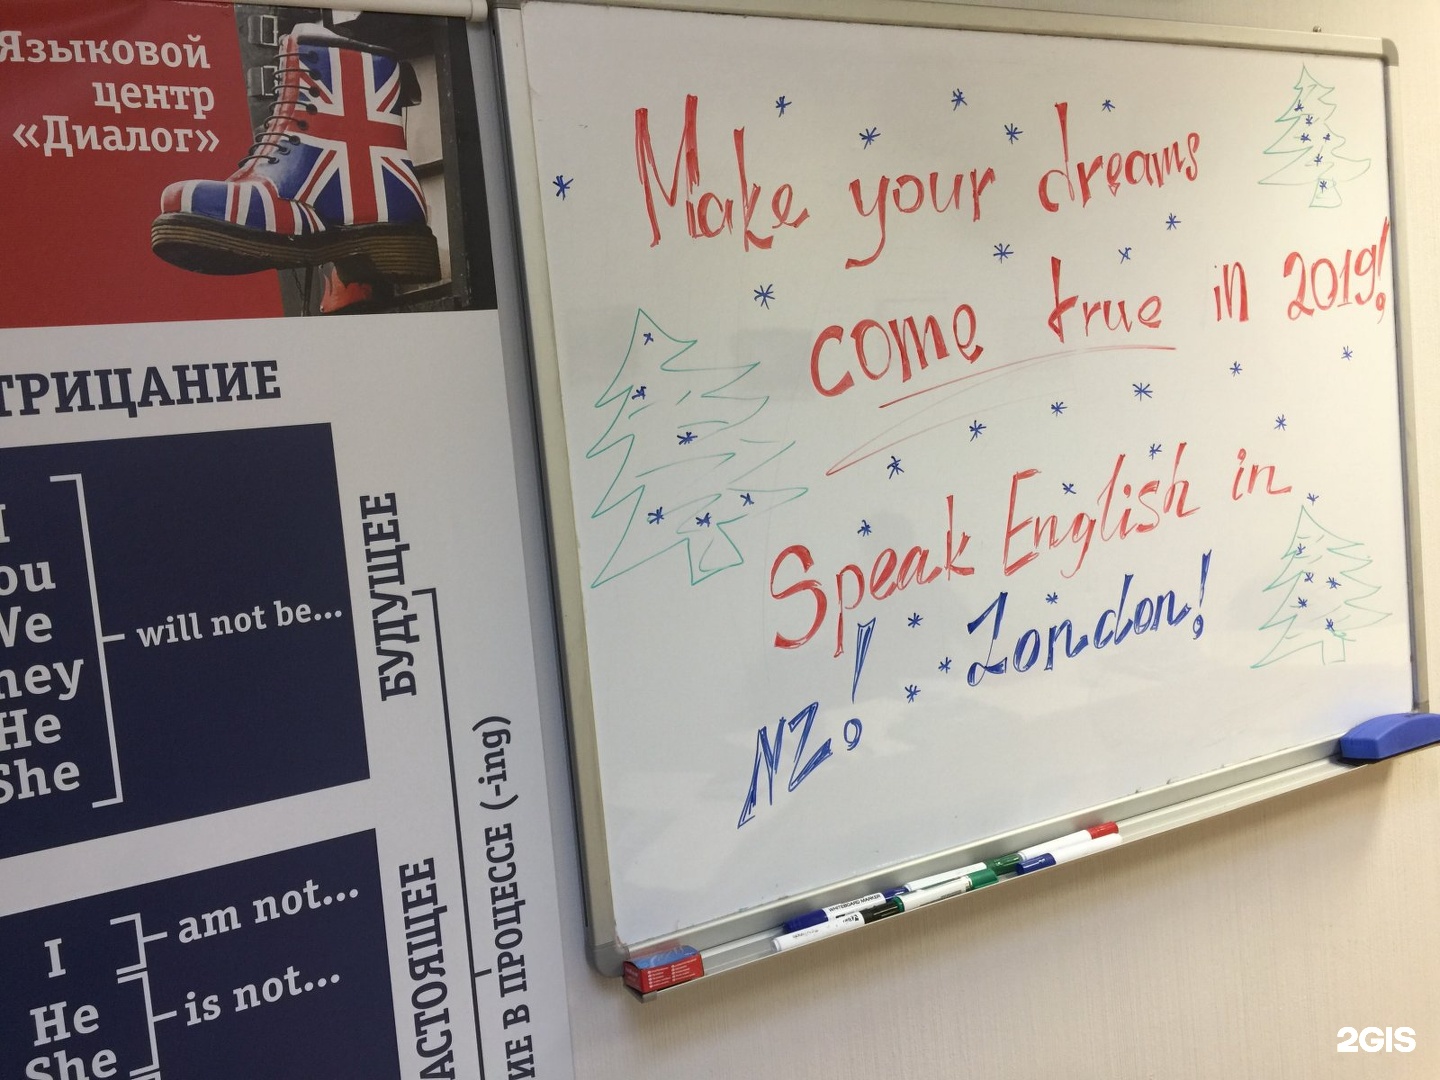 Языковой
центр
«Диалог»
ТРИЦАНИЕ
I
ou
We
hey
He
She
will not be...
БУДУЩЕЕ
I
He
She
am not...
is not...
АСТОЯЩЕЕ
ИЕ В ПРОЦЕССЕ (-ing)
Make your dreams
come true in 2019!
Speak English in
NZ! London!
WHITEBOARD MARKER
2GIS